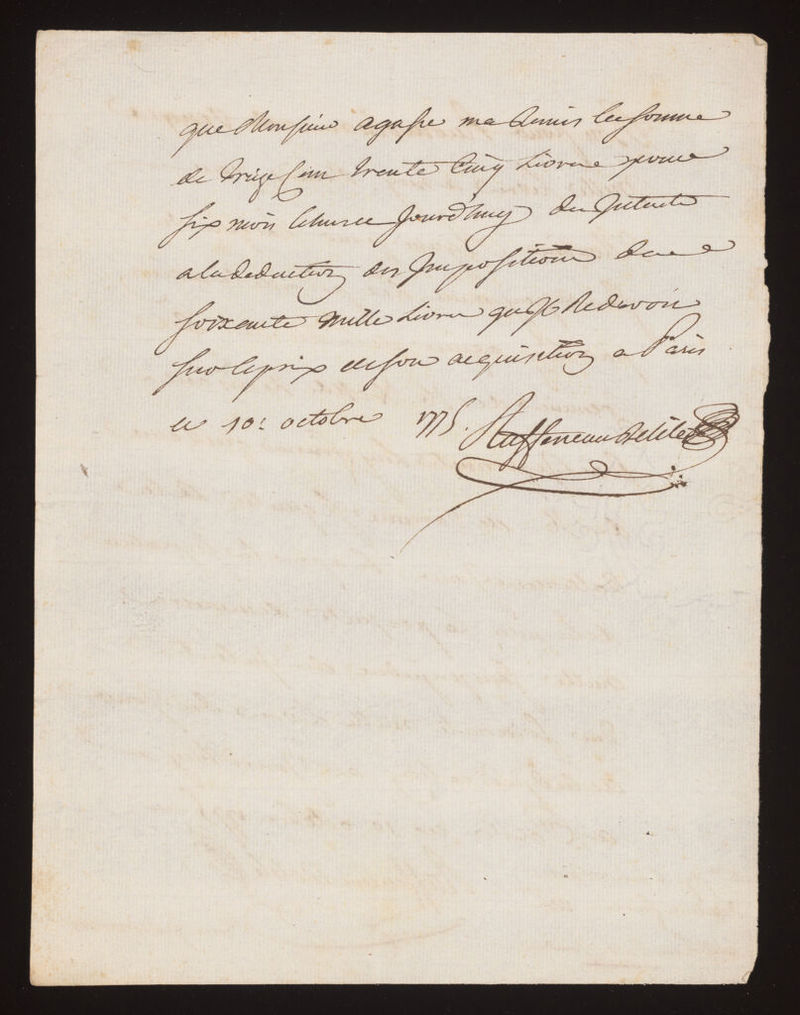 que Monsieur agasse ma Remis la somme
de treize Cent trente Cinq Livres pour
six mois Echuree Jourd'huy des Interets
a la deduction des Impositions de
soixante Mille Livres qu'il Redevoit
sur le prix de son acquisition a Paris
ce 10: octobre 1775. Raffeneau Delile